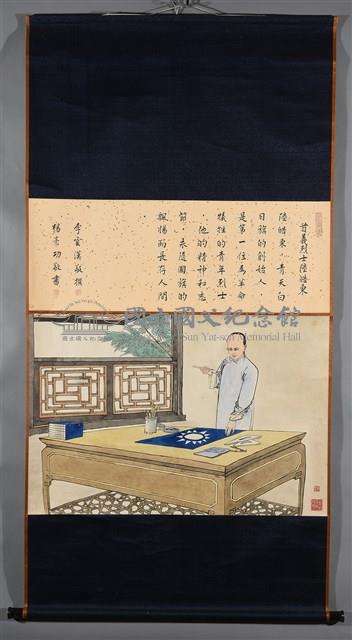 首義烈士陸皓東
陸皓東，青天白
日旗的創始人
是第一位為革命
犧牲的青年烈士
，他的精神和志
節，永隨國旗的
飄揚而長存人間
。
李雲漢敬撰
國立國父紀念館
Sun Yat-sen Memorial Hall
國立國父紀念館